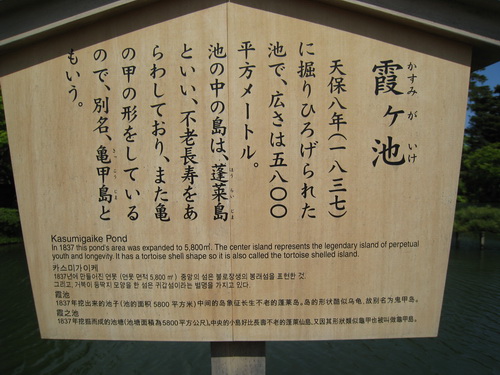 霞ヶ池
かすみがいけ
天保八年(一八三七)
に掘りひろげられた
池で、広さは五八〇〇
平方メートル。
池の中の島は、蓬莱島
ほうらいじま
といい、不老長寿をあ
らわしており、また亀
の甲の形をしている
ので、別名、亀甲島と
きっこうじま
もいう。
Kasumigaike Pond
In 1837 this pond's area was expanded to 5.800㎡. The center island represents the legendary island of perpetual
youth and longevity. It has a tortoise shell shape so it is also called the tortoise shelled island.
카스미가이케
1837년에 만들어진 연못 (연못 면적 5,800 ㎡) 중앙의 섬은 불로장생의 봉래섬을 표현한 것.
그리고, 거북이 등딱지 모양을 한 섬은 귀갑섬이라는 별명을 가지고 있다.
霞池
1837年挖出来的池子(池的面积 5800 平方米)中间的岛象征长生不老的蓬莱岛。岛的形状酷似乌龟,故别名为鬼甲岛。
霞之池
1837年挖掘而成的池塘(池塘面積為5800平方公尺)。中央的小島好比長壽不老的蓬萊仙島,又因其形狀酷似龜甲也被叫做龜甲島。